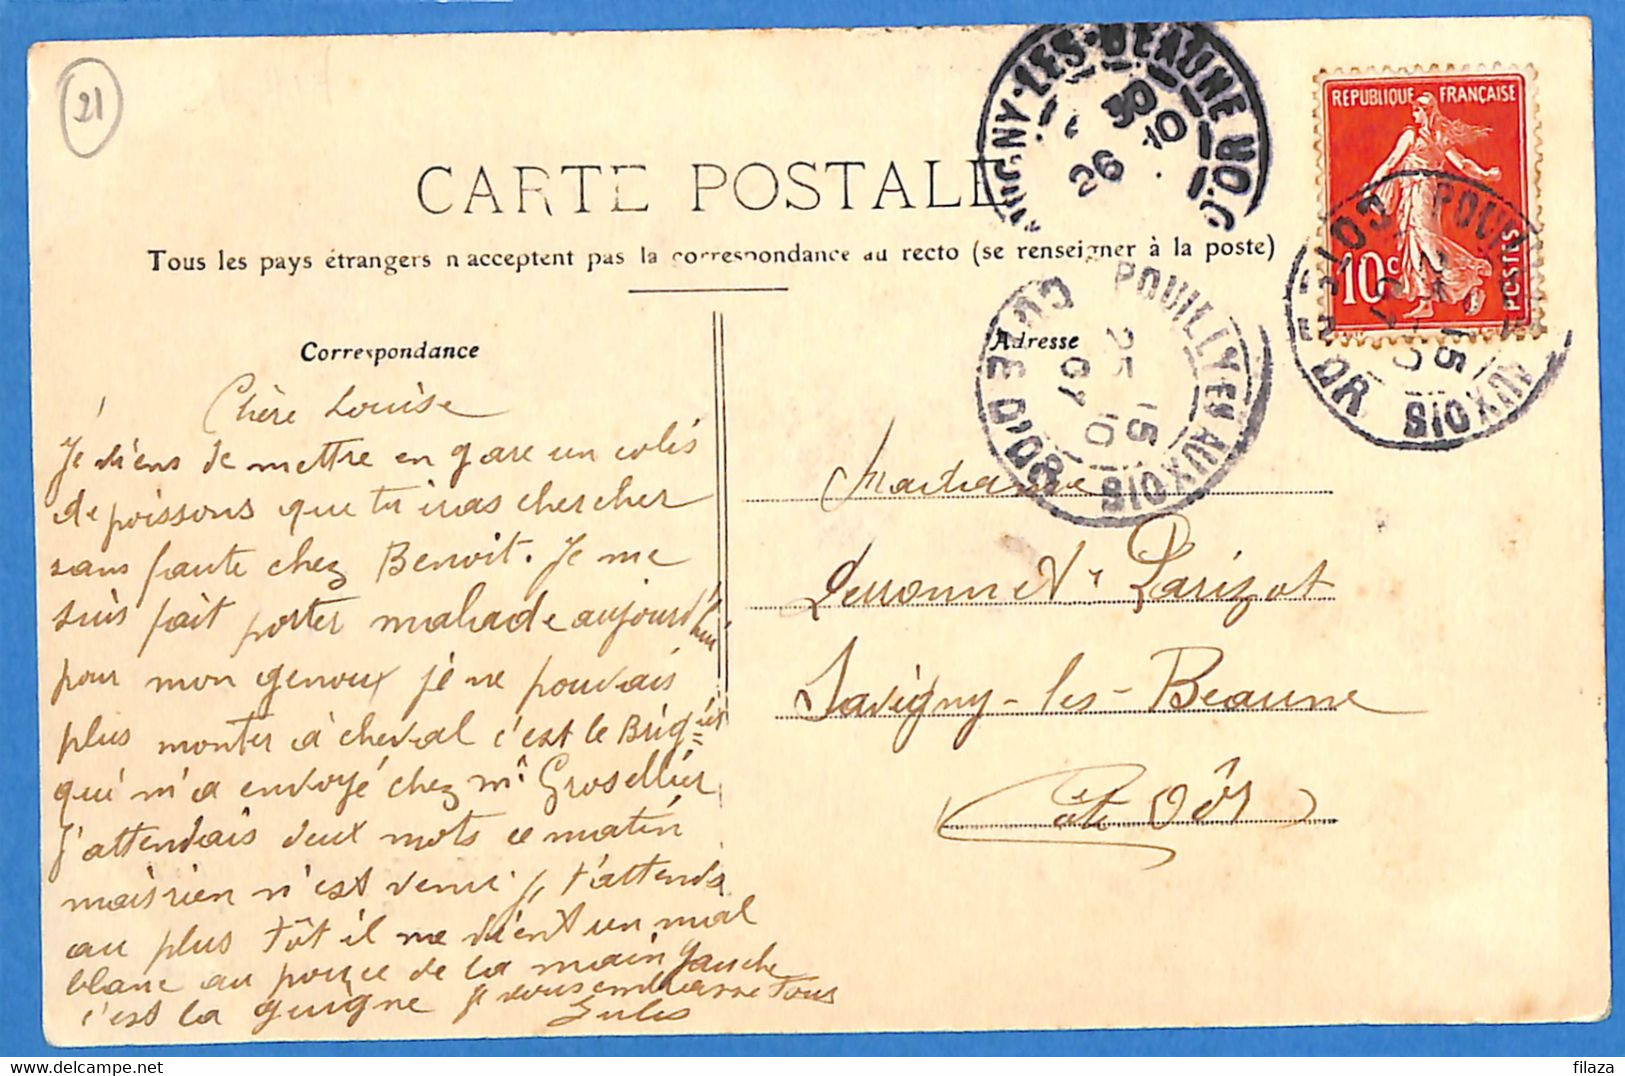 21
CARTE POSTALE
Tous les pays étrangers n'acceptent pas la correspondance au recto (se renseigner à la poste)
SAVIGNY-LES-BEAUNE C. D'OR
26 10
REPUBLIQUE FRANÇAISE
10c
POSTES
POUILLY EN AUXOIS
COTE D'OR
15
25 10
07
POUILLY EN AUXOIS
COTE D'OR
15
Correspondance
Adresse
Chère Louise
Je viens de mettre en gare un colis
de poissons que tu iras chercher
sans faute chez Benoit. Je me
suis fait porter malade aujourd'hui
pour mon genoux je ne pouvais
plus monter à cheval c'est le Brigier
qui m'a envoyé chez Mr Grosellier
J'attendais deux mots ce matin
mais rien n'est venu, j' t'attends
au plus tôt il me vient un mal
blanc au pouce de la main gauche
c'est la guigne je vous embrasse tous
Jules
Madame
Vve Larizot
Savigny-les-Beaune
Côte Dôr
https://www.delcampe.net
filaza